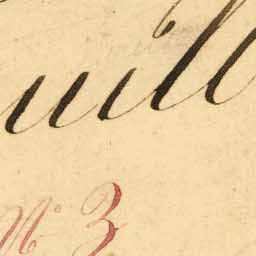 uill
No 3